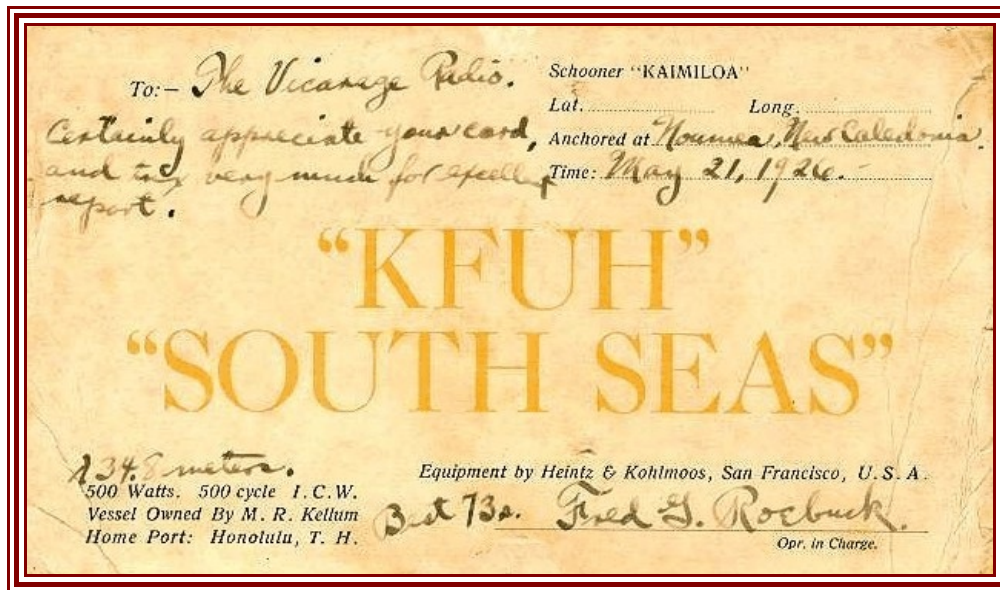 To:— The Vicarage Radio.
Certainly appreciate your card,
and very much for
report.
Schooner "KAIMILOA"
Lat. Long.
Anchored at Noumea, New Caledonia.
Time: May 21, 1926.
"KFUH"
"SOUTH SEAS"
34.8 meters.
500 Watts. 500 cycle I.C.W.
Vessel Owned By M. R. Kellum
Home Port: Honolulu, T. H.
Equipment by Heintz & Kohlmoos, San Francisco, U. S. A.
Best 73s. Fred G. Roebuck.
Opr. in Charge.